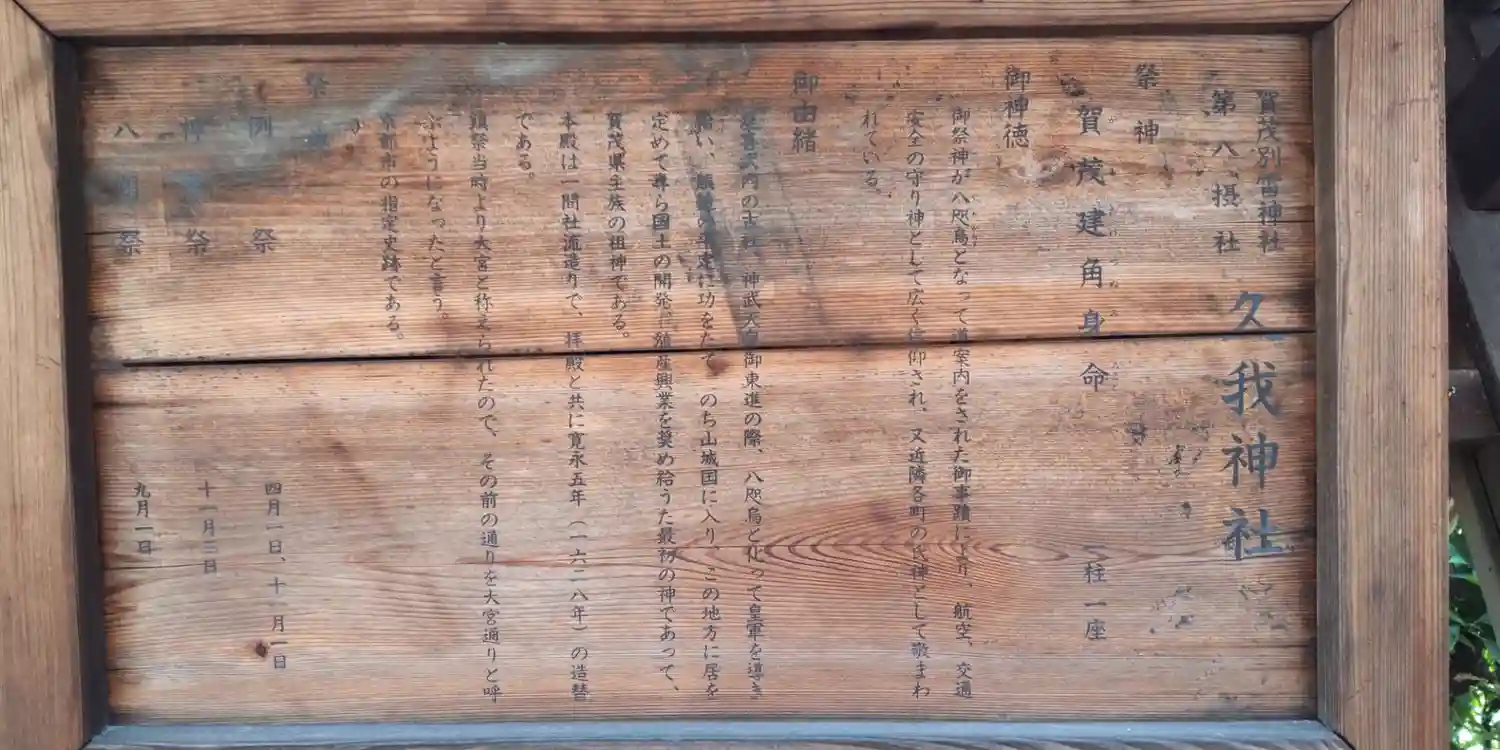 賀茂別雷神社
第八摂社
久我神社
祭神
賀茂建角身命
一柱一座
御神徳
御祭神が八咫烏となって道案内をされた御事蹟により、航空、交通
安全の守り神として広く信仰され、又近隣各町の氏神として敬まわ
れている。
御由緒
内の古社、神武天皇御東進の際、八咫烏と化って皇軍を導き
給い、功をたて、のち山城国に入り、この地方に居を
定めて専ら国土の開発、殖産興業を奨め給うた最初の神であって、
賀茂県主族の祖神である。
本殿は一間社流造りで、拝殿と共に寛永五年(一六二八年)の造替
である。
鎮祭当時より大宮と称えられたので、その前の通りを大宮通りと呼
ぶようになったと言う。
京都市の指定史跡である。
祭
例祭 四月一日、十一月一日
祭 十一月三日
八朔祭 九月一日